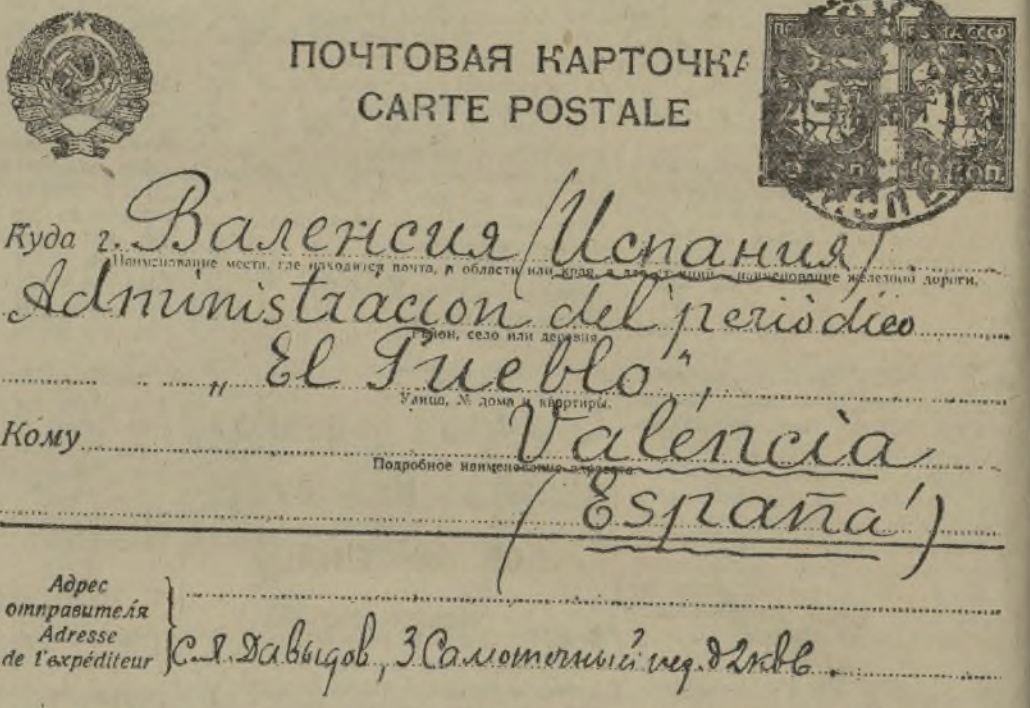 ПОЧТОВАЯ КАРТОЧКА
CARTE POSTALE
ПОЧТА СССР
КОП.
Куда г. Валенсия (Испания)
Наименование места, где находится почта, и области или края, а для станций наименование железной дороги.
Administracion del periòdico
Район, село или деревня
„El Pueblo",
Улица, № дома и квартиры.
Кому València
Подробное наименование адресата
(España)
Адрес
отправителя
Adresse
de l'expéditeur
С.Я. Давыдов, 3 Самотечный пер. д 2 кв 6.